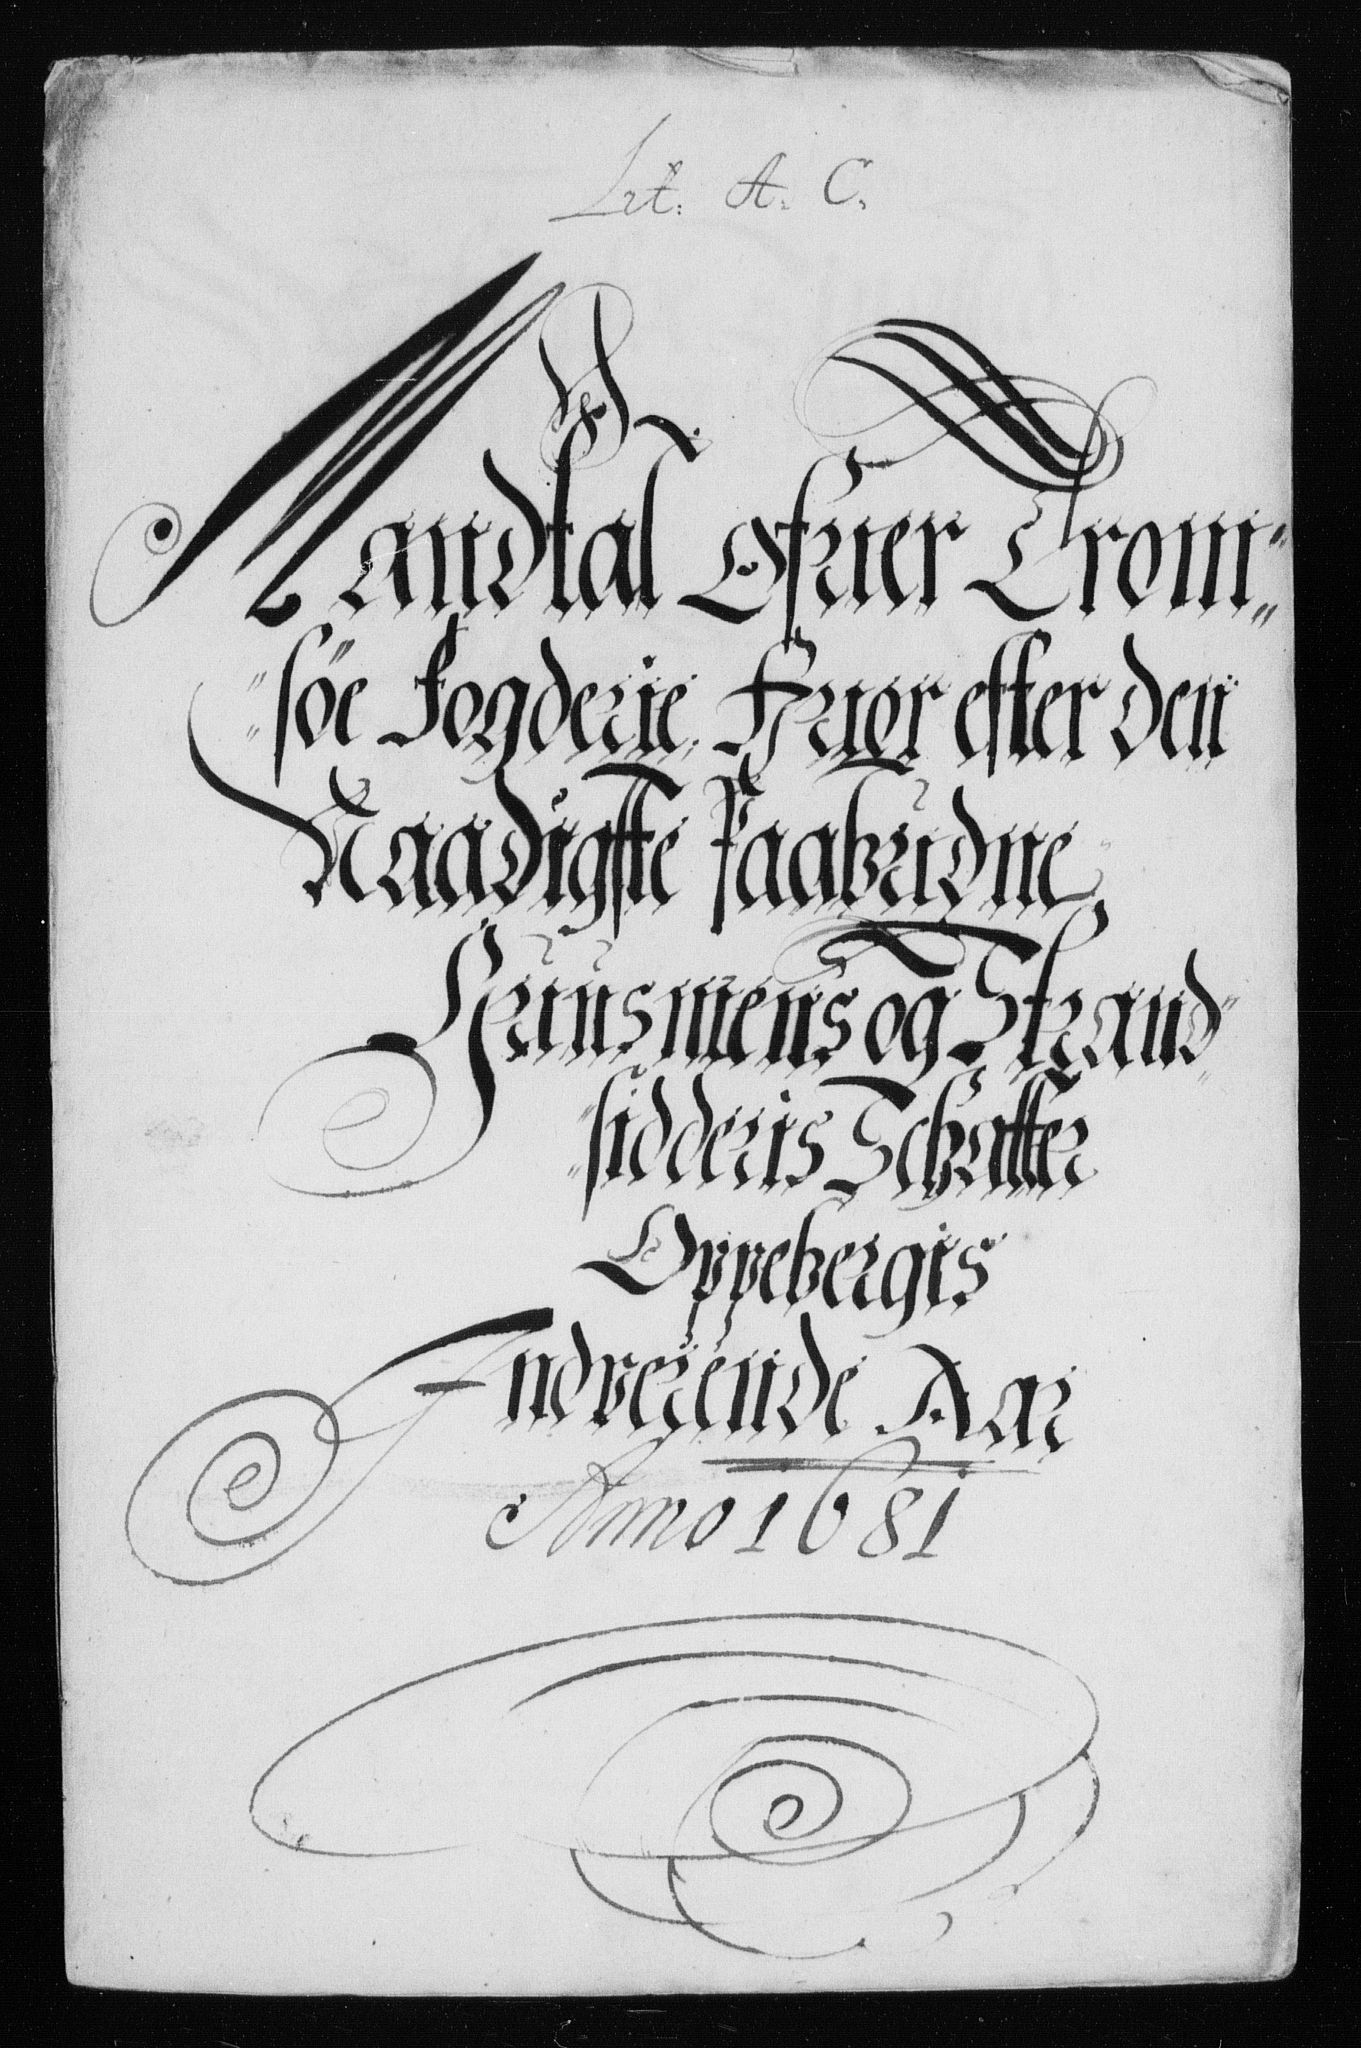 Lit. A. C.
Mandtal Ofuer Trom-
-söe Fogderie, Huor efter den
Naadigste Paabudne,
Huusmens og Strand-
-sidderis Schatter
Oppebergis
Indverende Aar
Anno 1681